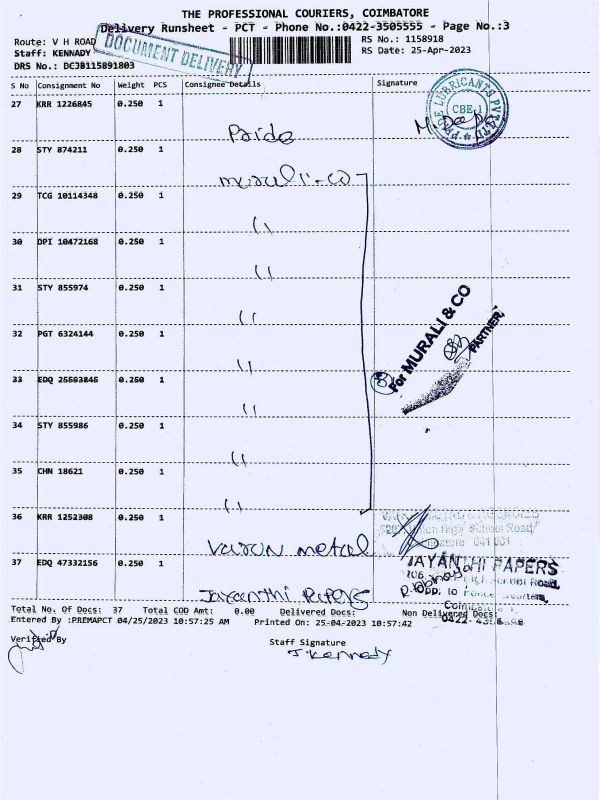 THE PROFESSIONAL COURIERS, COIMBATORE
Delivery Runsheet - PCT - Phone No.:0422-3505555 - Page No.:3
Route: V H ROAD
RS No.: 1158918
Staff: KENNADY
RS Date: 25-Apr-2023
DOCUMENT DELIVERY
DRS No.: DCJB115891803
S No Consignment No Weight PCS Consignee Details Signature
27 KRR 1226845 0.250 1
PRIDE LUBRICANTS PVT LTD
CBE-1
28 STY 874211 0.250 1
murali-co
29 TCG 10114348 0.250 1
"
30 DPI 10472168 0.250 1
"
31 STY 855974 0.250 1
"
32 PGT 6324144 0.250 1
"
33 EDQ 25593845 0.250 1
"
34 STY 855986 0.250 1
"
35 CHN 18621 0.250 1
"
For MURALI & CO
PARTNER
36 KRR 1252308 0.250 1
Varun metal
High School Road
641 001
37 EDQ 47332156 0.250 1
Jayanthi Papers
JAYANTHI PAPERS
Opp. to
Total No. Of Docs: 37 Total COD Amt: 0.00 Delivered Docs: Non Delivered Docs:
Entered By :PREMAPCT 04/25/2023 10:57:25 AM Printed On: 25-04-2023 10:57:42
Verified By Staff Signature
J. Kennady